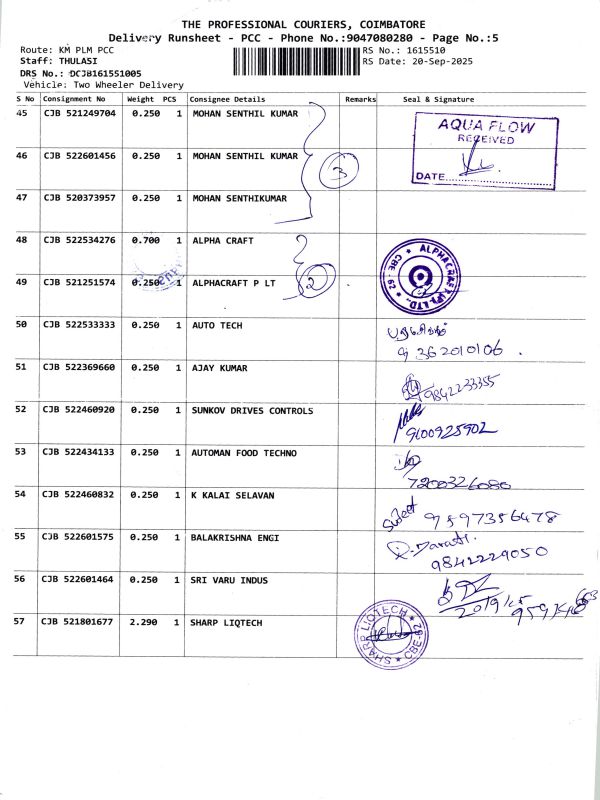 THE PROFESSIONAL COURIERS, COIMBATORE
Delivery Runsheet - PCC - Phone No.:9047080280 - Page No.:5
Route: KM PLM PCC
RS No.: 1615510
Staff: THULASI
RS Date: 20-Sep-2025
DRS No.: DCJB161551005
Vehicle: Two Wheeler Delivery
S No Consignment No Weight PCS Consignee Details Remarks Seal & Signature
45 CJB 521249704 0.250 1 MOHAN SENTHIL KUMAR
AQUA FLOW
RECEIVED
DATE
46 CJB 522601456 0.250 1 MOHAN SENTHIL KUMAR
3
47 CJB 520373957 0.250 1 MOHAN SENTHIKUMAR
48 CJB 522534276 0.700 1 ALPHA CRAFT
ALPHACRAFT (P) LTD. * CBE-62 *
49 CJB 521251574 0.250 1 ALPHACRAFT P LT
2
50 CJB 522533333 0.250 1 AUTO TECH
9 362010106
51 CJB 522369660 0.250 1 AJAY KUMAR
9842233355
52 CJB 522460920 0.250 1 SUNKOV DRIVES CONTROLS
9600925902
53 CJB 522434133 0.250 1 AUTOMAN FOOD TECHNO
7200326080
54 CJB 522460832 0.250 1 K KALAI SELAVAN
9597356478
55 CJB 522601575 0.250 1 BALAKRISHNA ENGI
9842229050
56 CJB 522601464 0.250 1 SRI VARU INDUS
57 CJB 521801677 2.290 1 SHARP LIQTECH
SHARP LIQTECH * CBE-62 *